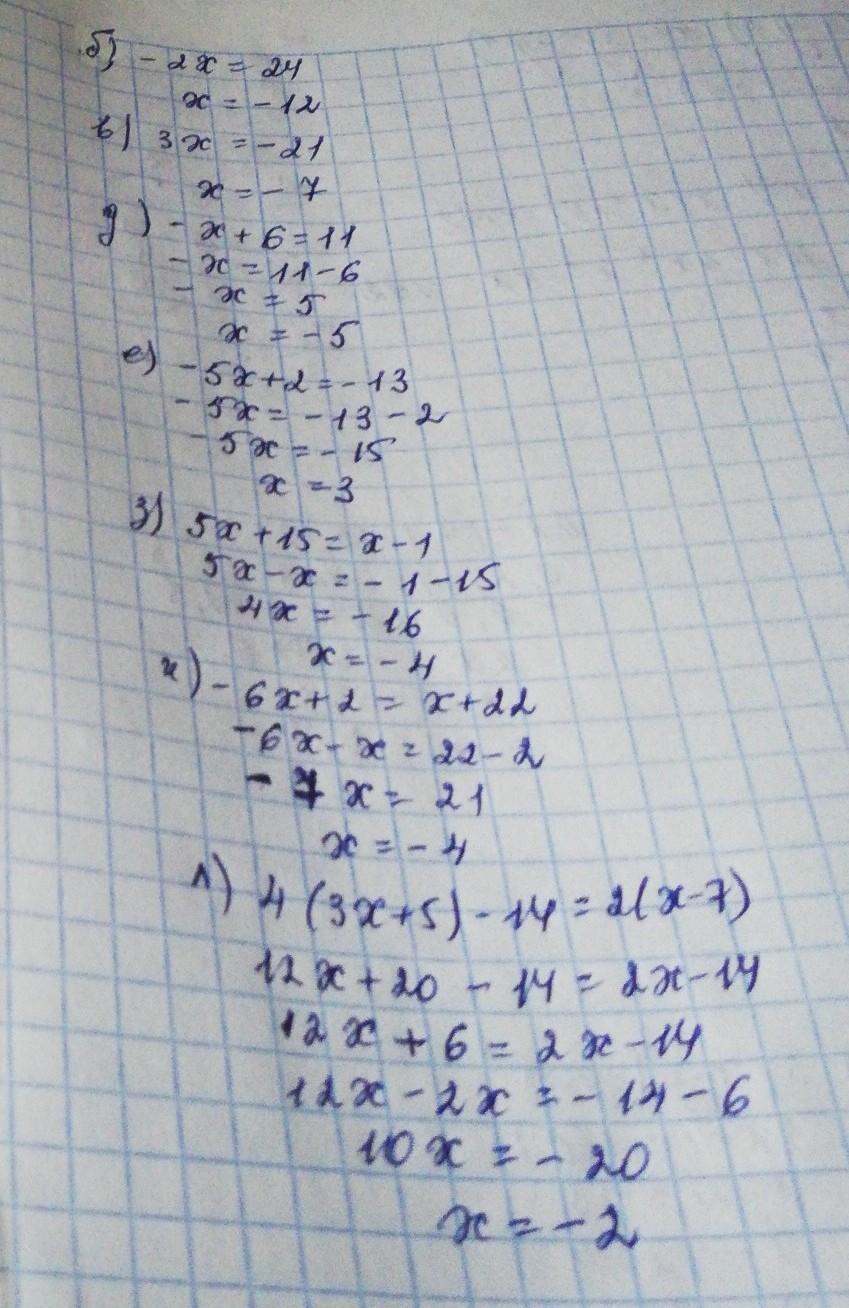 б) - 2x = 24
x = - 12
в) 3x = - 21
x = - 7
д) - x + 6 = 11
- x = 11 - 6
- x = 5
x = - 5
е) - 5x + 2 = - 13
- 5x = - 13 - 2
- 5x = - 15
x = 3
з) 5x + 15 = x - 1
5x - x = - 1 - 15
4x = - 16
x = - 4
и) - 6x + 2 = x + 22
- 6x - x = 22 - 2
- 7x = 21
x = - 4
л) 4(3x+5) - 14 = 2(x-7)
12x + 20 - 14 = 2x - 14
12x + 6 = 2x - 14
12x - 2x = - 14 - 6
10x = - 20
x = - 2